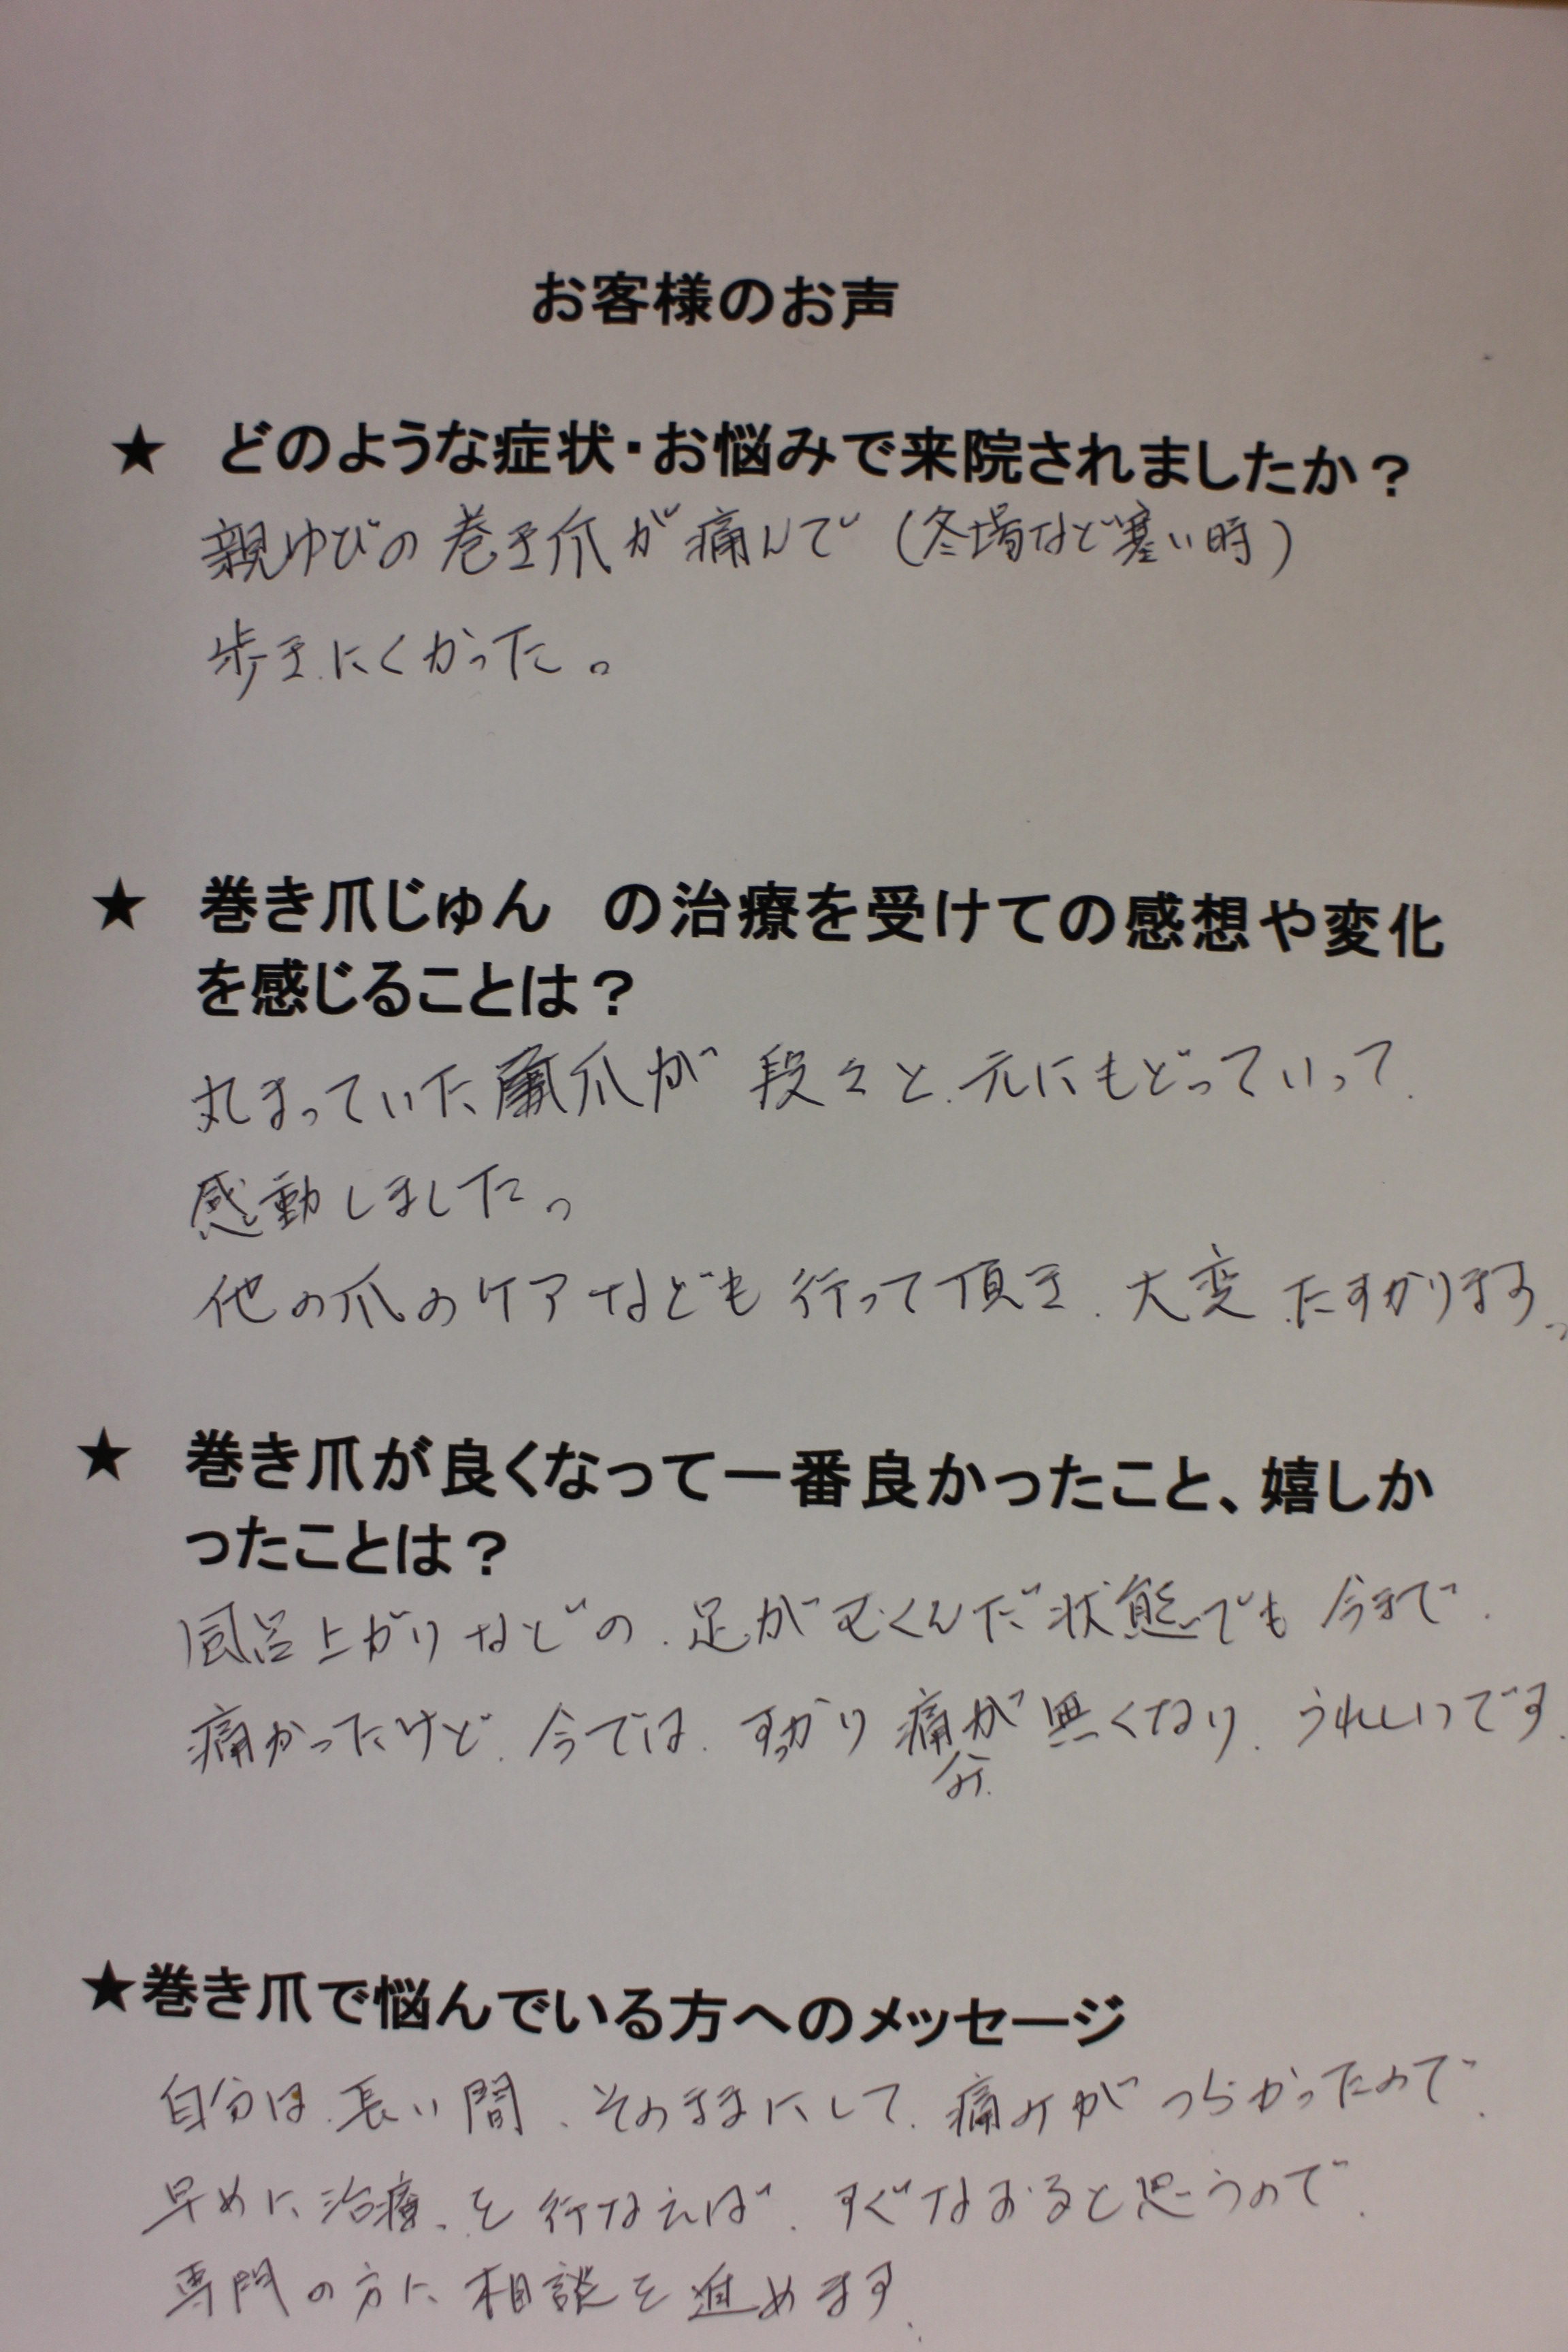 お客様のお声
★ どのような症状・お悩みで来院されましたか？
親ゆびの巻き爪が痛んで（冬場など寒い時）
歩きにくかった。
★ 巻き爪じゅん の治療を受けての感想や変化
を感じることは？
丸まっていた爪が段々と、元にもどっていって、
感動しました。
他の爪のケアなども行って頂き、大変、たすかります。
★ 巻き爪が良くなって一番良かったこと、嬉しか
ったことは？
風呂上がりなどの、足がむくんだ状態でも今まで、
痛かったけど、今では、すっかり痛みが無くなり、うれしいです。
★巻き爪で悩んでいる方へのメッセージ
自分は、長い間、そのままにして、痛みがつらかったので、
早めに治療、を行なえば、すぐなおると思うので、
専門の方に相談を進めます。